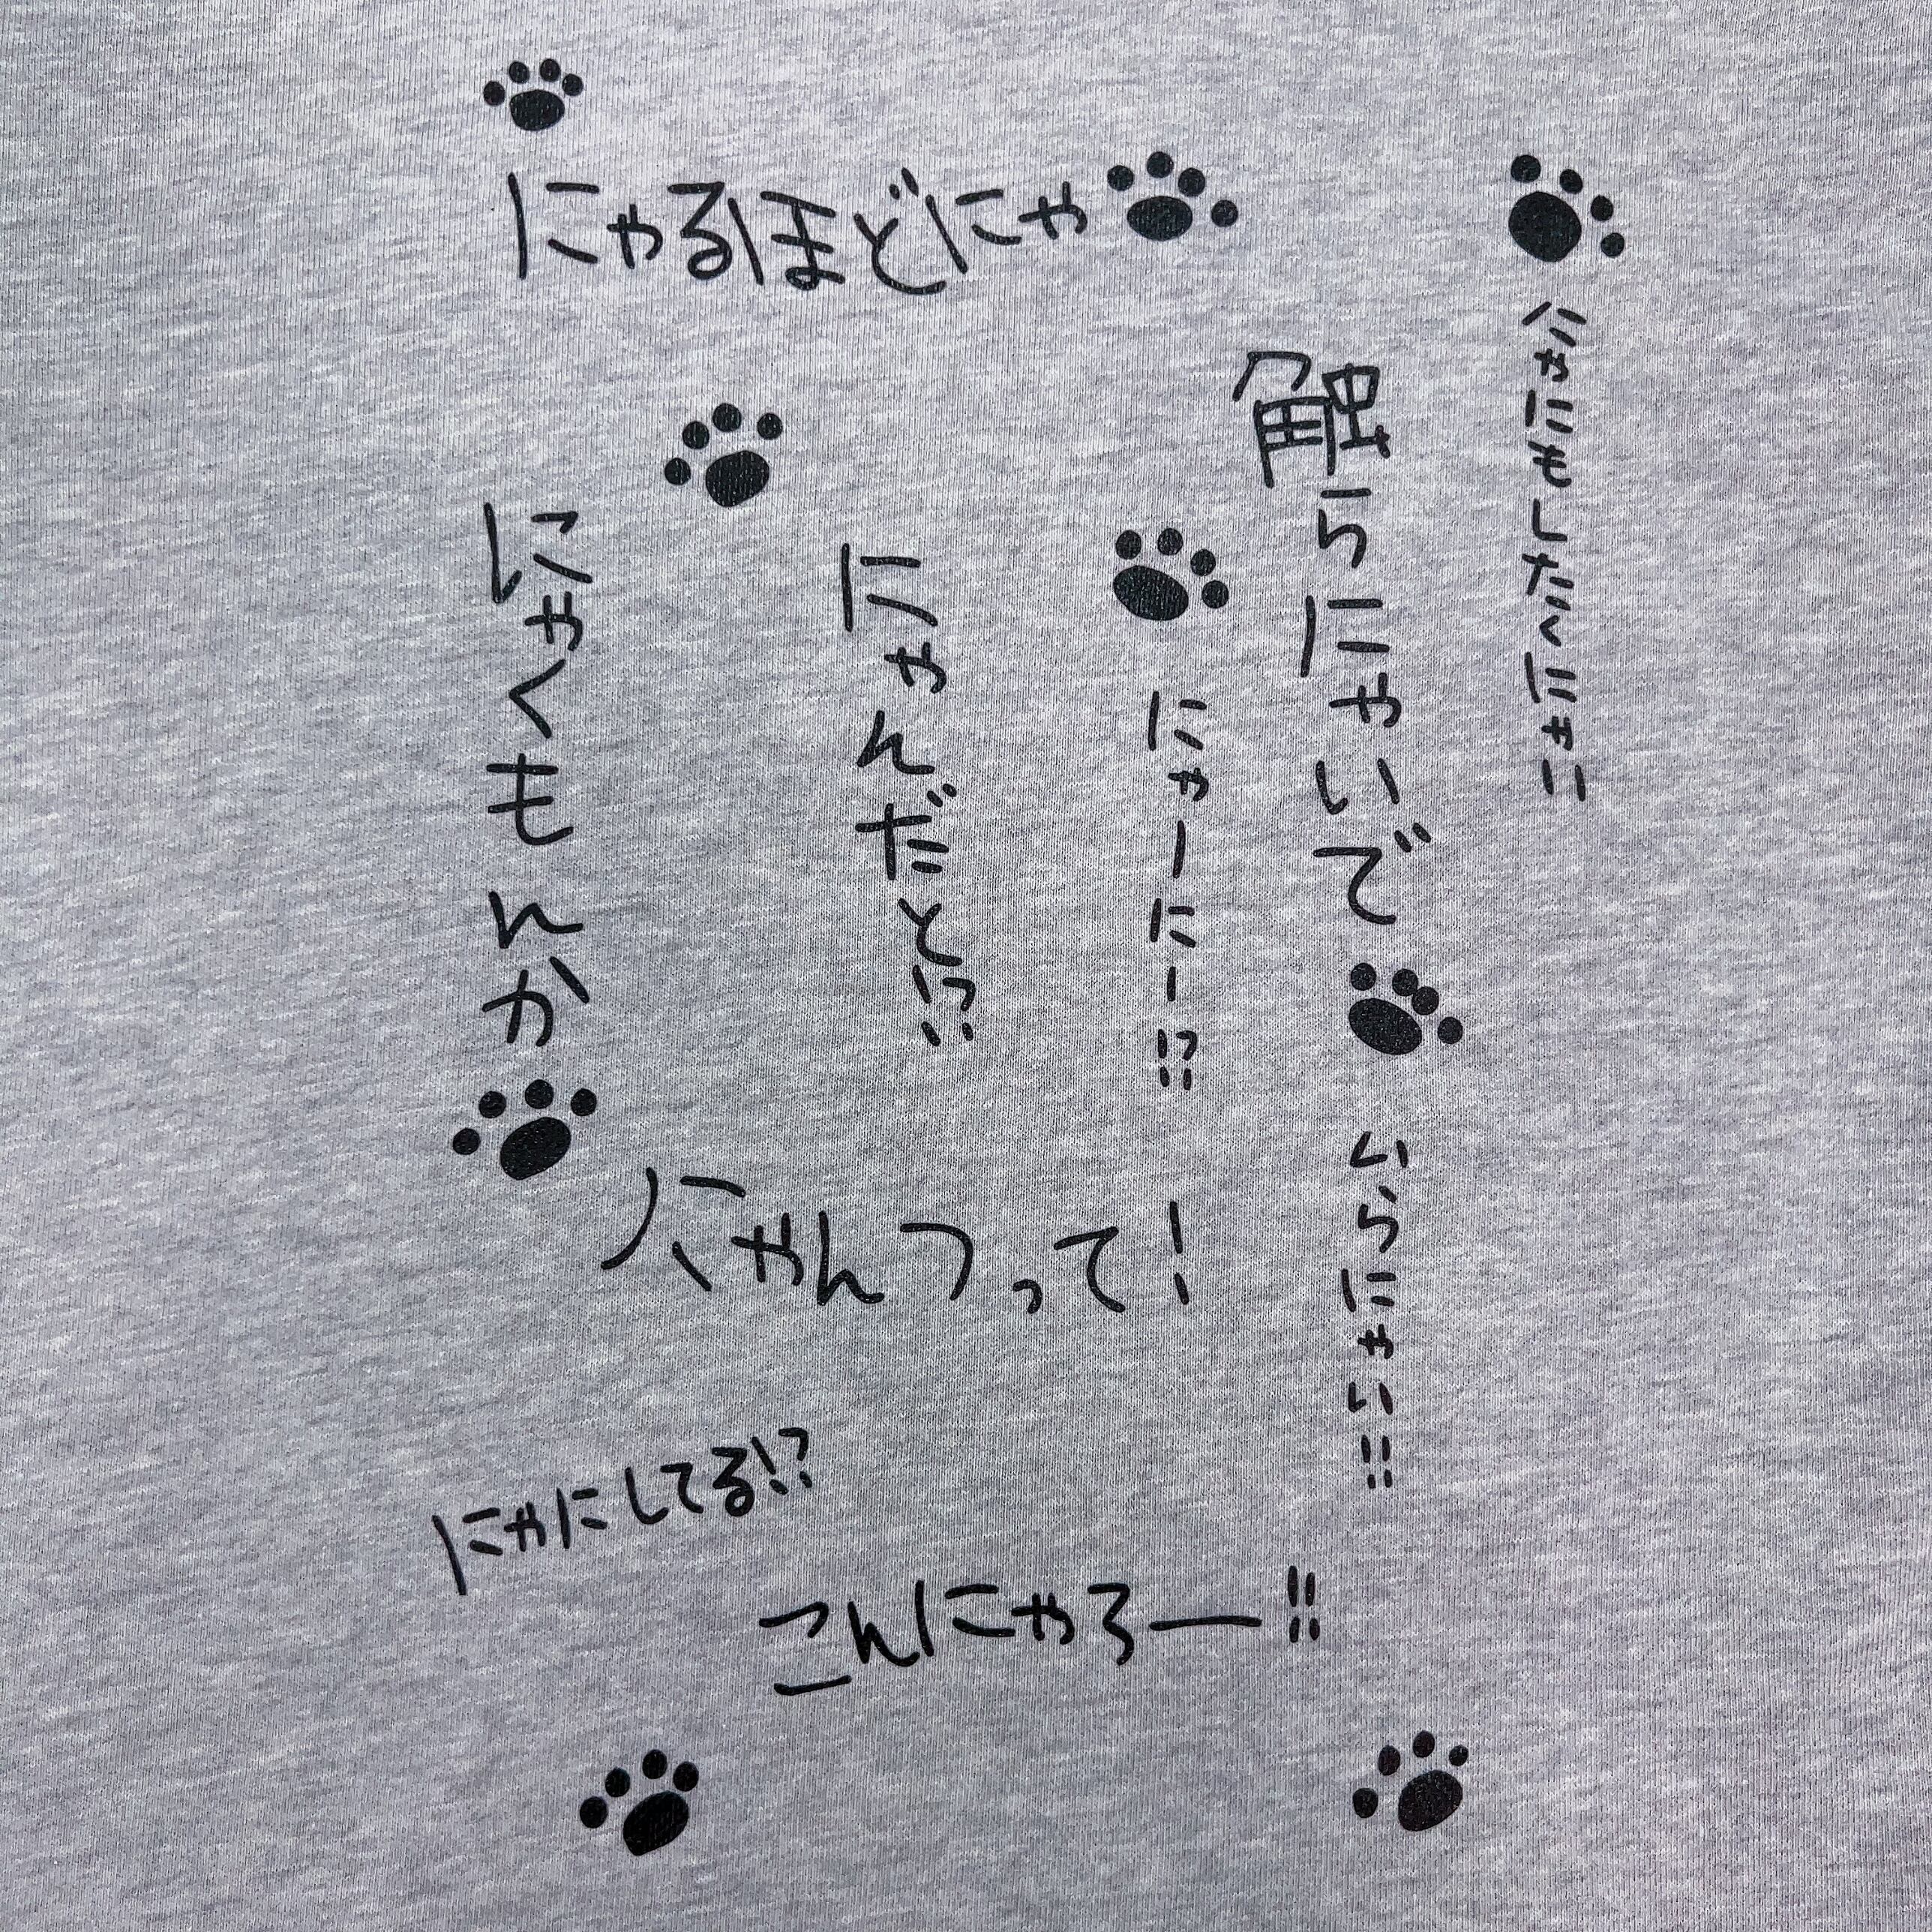 にゃるほどにゃ
にゃにもしたくにゃい
触らにゃいで
にゃーにー!?
にゃんだと!?
にゃくもんか
いらにゃい!!
にゃんつって!
にゃにしてる!?
こんにゃろー!!